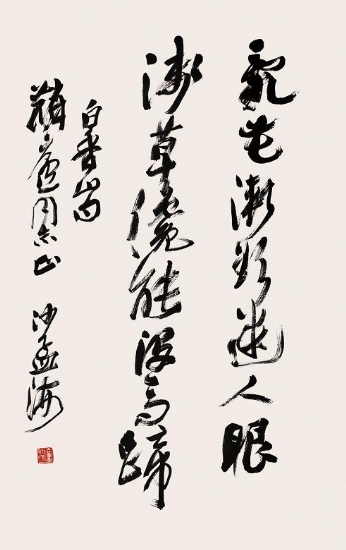 亂花漸欲迷人眼
淺草纔能沒馬蹄
白香山句
廬同志正 沙孟海